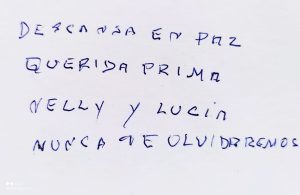 DESCANSA EN PAZ
QUERIDA PRIMA
NELLY Y LUCIA
NUNCA TE OLVIDAREMOS